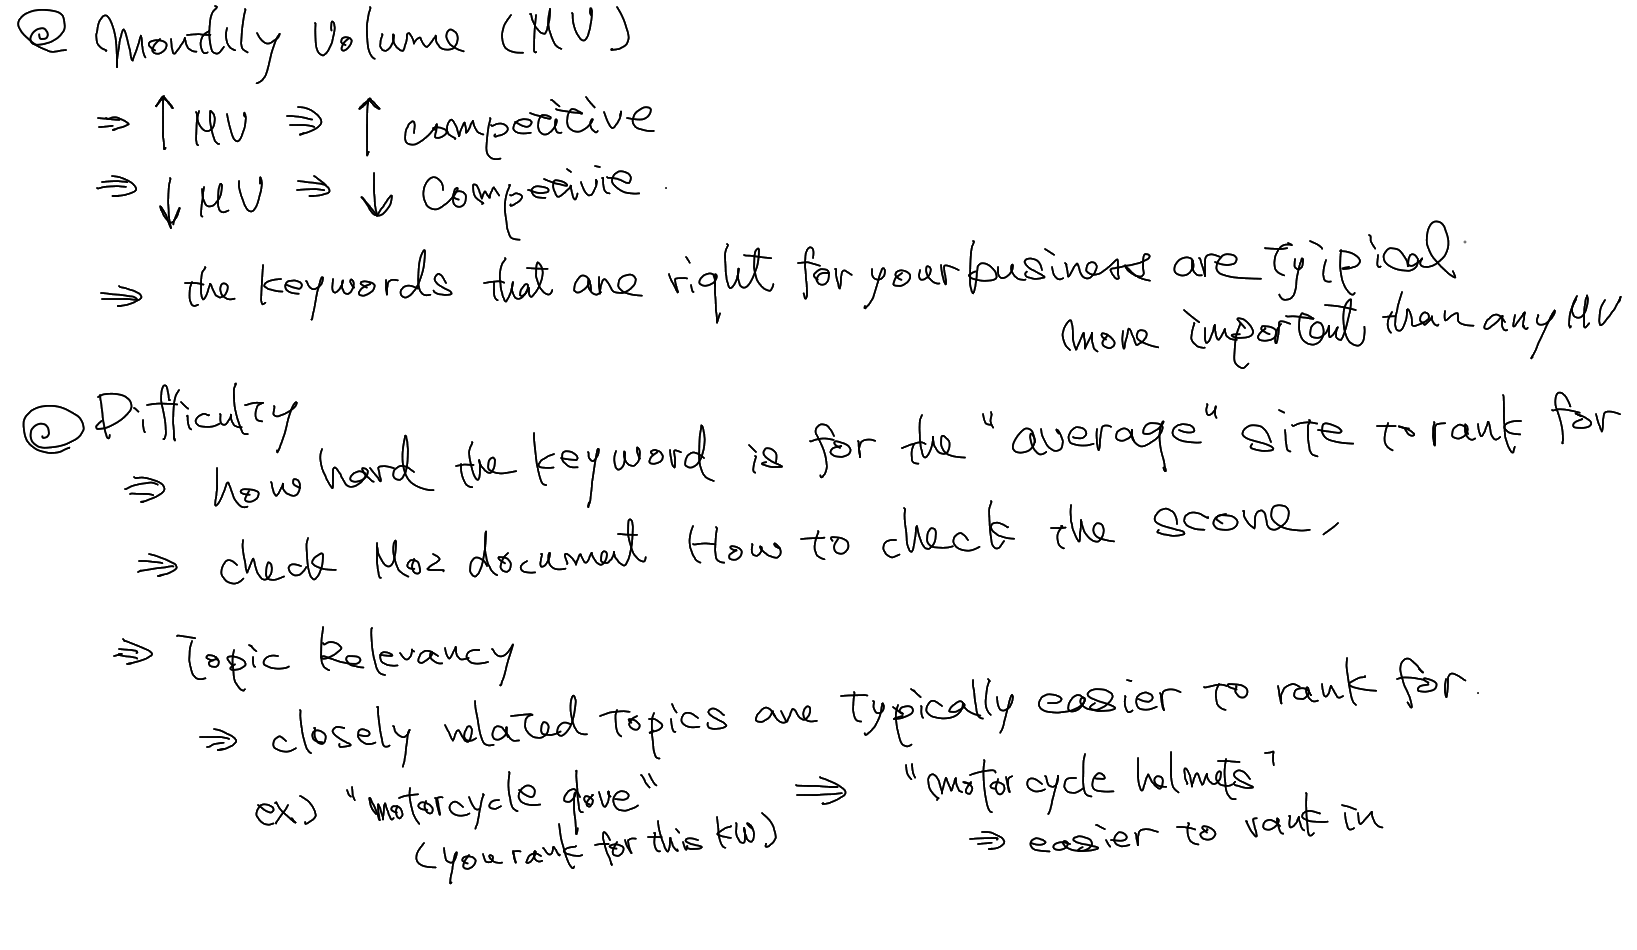 Monthly Volume (MV)
⇒ ↑ MV ⇒ ↑ competitive
⇒ ↓ MV ⇒ ↓ Competivie.
⇒ the keywords that are right for your business are tyipical
more important than any MV
Difficulty
⇒ how hard the keyword is for the "average" site to rank for
⇒ check Moz document How to check the score,
⇒ Topic Relevancy
⇒ closely related topics are typically easier to rank for.
ex) "motorcycle glove" ⇒ "motorcycle helmets"
(you rank for this KW) ⇒ easier to rank in